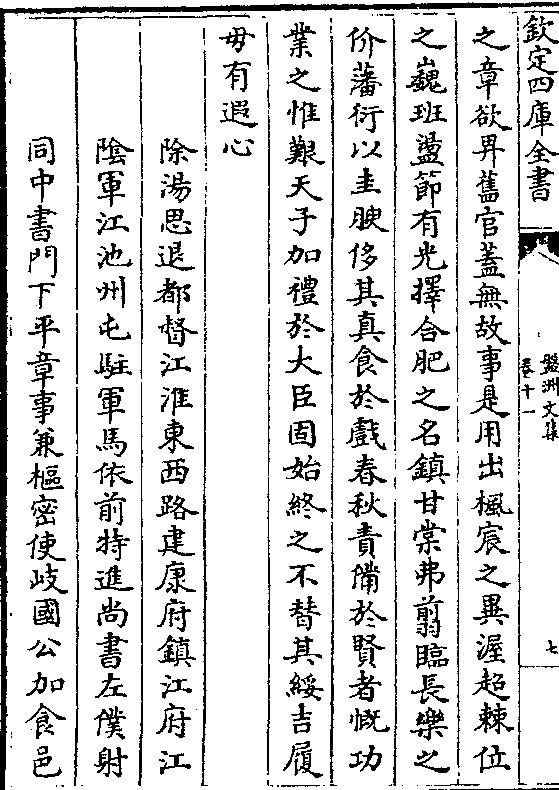 欽定四庫全書
盤洲文集
卷十一
七
之章欲畀舊官蓋無故事是用出楓宸之異渥超棘位
之巍班盪節有光擇合肥之名鎮甘棠弗翦臨長樂之
价藩衍以圭腴侈其真食於戲春秋責備於賢者慨功
業之惟艱天子加禮於大臣固始終之不替其綏吉履
毋有遐心
除湯思退都督江淮東西路建康府鎮江府江
陰軍江池州屯駐軍馬依前特進尚書左僕射
同中書門下平章事兼樞密使岐國公加食邑